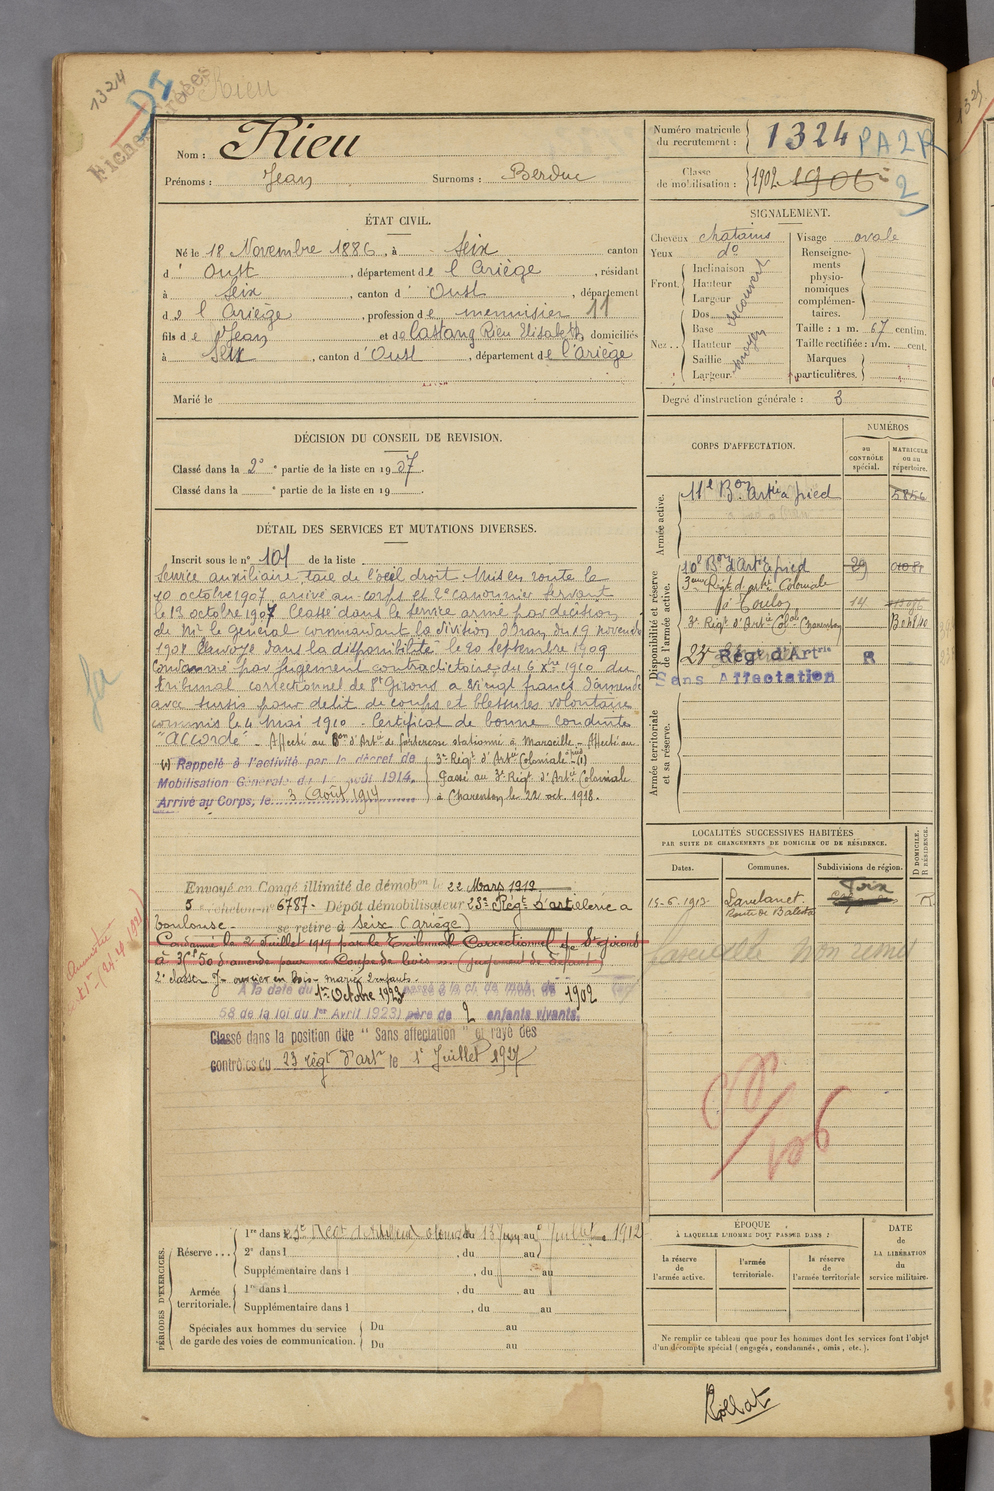 1324
Rieu
D1
Nom : Rieu
Prénoms : Jean Surnoms : Berduc
Numéro matricule du recrutement : 1324 PA2R
Classe de mobilisation : 1902 1906 2
ÉTAT CIVIL.
Né le 18 Novembre 1886, à Seix canton
d' Oust, département de l'Ariège, résidant
à Seix, canton d' Oust, département
de l'Ariège, profession de menuisier 11
fils de Jean et de Castang Rieu Elisabeth, domiciliés
à Seix, canton d' Oust, département de l'ariège
Marié le
SIGNALEMENT.
Cheveux chatains
Yeux do
Front. Inclinaison
Hauteur
Largeur
découvert
Nez.. Dos
Base
Hauteur
Saillie
Largeur
moyen
Visage ovale
Renseigne-
ments
physio-
nomiques
complémen-
taires.
Taille : 1 m. 67 centim.
Taille rectifiée : 1 m. cent.
Marques
particulières.
Degré d'instruction générale : 3
DÉCISION DU CONSEIL DE REVISION.
Classé dans la 2e partie de la liste en 1907.
Classé dans la e partie de la liste en 19
DÉTAIL DES SERVICES ET MUTATIONS DIVERSES.
Inscrit sous le n° 101 de la liste
Service auxiliaire, taie de l'oeil droit. Mis en route le
10 octobre 1907, arrivé au corps et 2e canonnier servant
le 13 octobre 1907 Classé dans le service armé par décision
de Mr le Général commandant la division d'Oran du 19 novembre
1908 Renvoyé dans la disponibilité le 20 septembre 1909
Condamné par jugement contradictoire du 6 Xbre 1910 du
tribunal correctionnel de St Girons à vingt francs d'amende
avec sursis pour délit de coups et blessures volontaires
commis le 4 mai 1910. Certificat de bonne conduite
"accordé". Affecté au Bon d'Artie de forteresse stationné à Marseille. Affecté au
(1) Rappelé à l'activité par le décret de
Mobilisation Générale du 1er août 1914.
Arrivé au Corps, le 3 Août 1914
3e Régt d'Artie Coloniale (1)
Passé au 3e Régt d'Artie Coloniale
à Charenton le 22 oct. 1918.
Envoyé en Congé illimité de démobon le 22 Mars 1919
5e échelon n° 6787. Dépôt démobilisateur 23e Régt d'artillerie à
Toulouse. se retire à Seix (Ariège)
Condamné le 2 Juillet 1919 par le Tribunal Correctionnel de St girons
2e classe ouvrier en bois marié 2 enfants.
A la date du 1er Octobre 1923 passé à la cl. de mob. de 1902
58 de la loi du 1er Avril 1923) père de 2 enfants vivants.
Classé dans la position dite "Sans affectation" et rayé des
contrôles du 23 régt d'artie le 1er Juillet 1927
CORPS D'AFFECTATION.
NUMÉROS
au CONTRÔLE spécial.
MATRICULE ou au répertoire.
Armée active.
11e Bon Artie à pied 5856
Disponibilité et réserve de l'armée active.
10e Bon d'Artie à pied 29
3eme Régt d'artie Coloniale
à Toulon 14
3e Régt d'Artie Colale Charenton
23e Régt d'Artrie R
Sans Affectation
Armée territoriale et sa réserve.
LOCALITÉS SUCCESSIVES HABITÉES
PAR SUITE DE CHANGEMENTS DE DOMICILE OU DE RÉSIDENCE.
Dates. Communes. Subdivisions de région.
D DOMICILE.
R RÉSIDENCE.
15-6-1913 Lavelanet Foix R
fascicule non remis
PÉRIODES D'EXERCICES.
Réserve... 1re dans le 3e Régt d'Artie Coloniale du 15 Juin au 1er Juillet 1912
2e dans l , du au
Supplémentaire dans l , du au
Armée territoriale. 1re dans l , du au
Supplémentaire dans l , du au
Spéciales aux hommes du service de garde des voies de communication. Du au
Du au
ÉPOQUE
À LAQUELLE L'HOMME DOIT PASSER DANS :
la réserve de l'armée active.
l'armée territoriale.
la réserve de l'armée territoriale
DATE de LA LIBÉRATION du service militaire.
Ne remplir ce tableau que pour les hommes dont les services font l'objet
d'un décompte spécial (engagés, condamnés, omis, etc.).